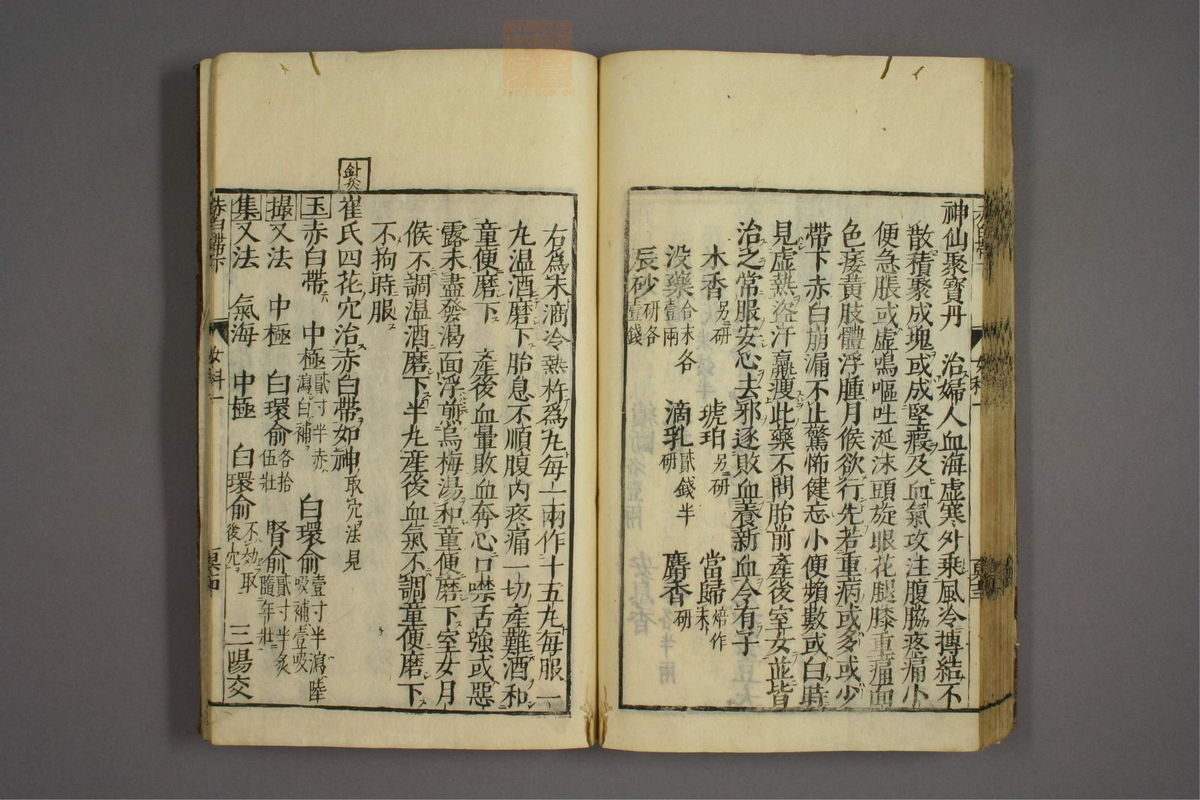 神仙聚寶丹　治婦人血海虛寒外乘風冷摶結不
散積聚成塊或成堅瘕及血氣攻注腹脇疼痛小
便急脹或虛鳴嘔吐涎沫頭旋眼花腿膝重痛面
色痿黃肢體浮腫月候欲行先若重病或多或少
帶下赤白崩漏不止驚怖健忘小便頻數或白時
見虛熱盜汗羸瘦此藥不問胎前產後室女並皆
治之常服安心去邪逐敗血養新血令有子
木香另研　琥珀另研　當歸焙作末
没藥各壹兩　滴乳貳錢半研　麝香研
辰砂研各壹錢
右爲末滴冷熱杵爲丸每一兩作十五丸每服一
丸温酒磨下胎息不順腹内疼痛一切產難酒和
童便磨下　產後血暈敗血奔心口噤舌強或惡
露未盡發渴面浮煎烏梅湯和童便磨下室女月
候不調温酒磨下半丸產後血氣不調童便磨下
不拘時服
鍼灸
崔氏四花穴治赤白帶如神取穴法見
玉赤白帶　中極貳寸半赤瀉白補　白環俞壹寸半瀉陸吸補壹吸
撮又法　中極　白環俞各拾伍壯　腎俞貳寸半灸隨年壯
集又法　氣海　中極　白環俞不効取後穴　三陽交
赤白帶下
女科一
女科一